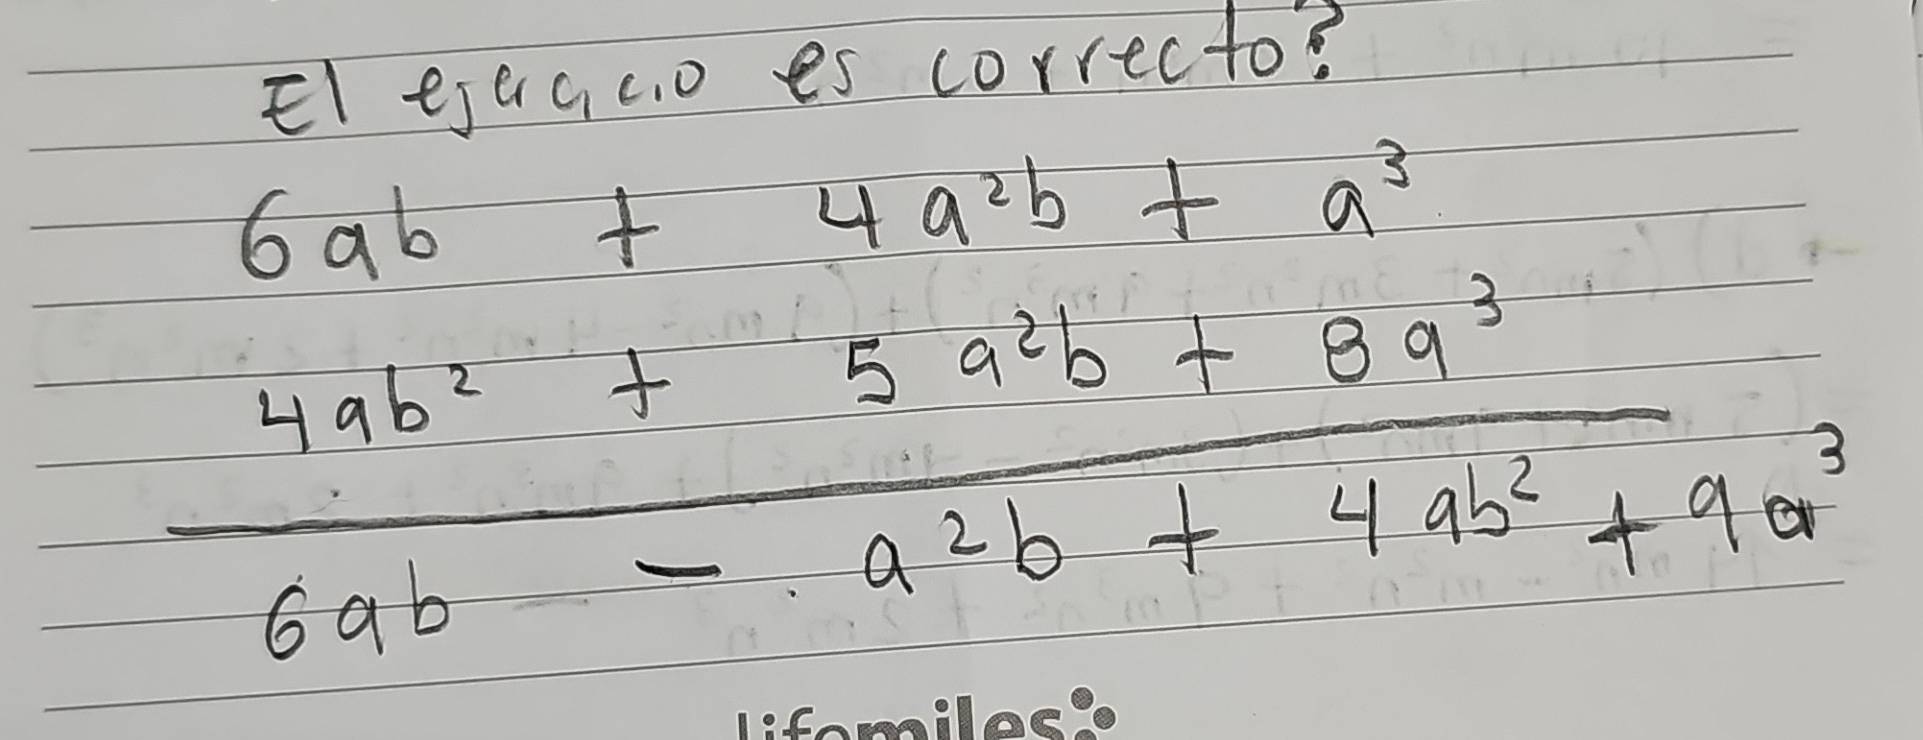 El ejercicio es correcto?
6ab + 4a²b + a³
4ab² + 5a²b + 8a³
6ab - a²b + 4ab² + 9a³
lifemiles